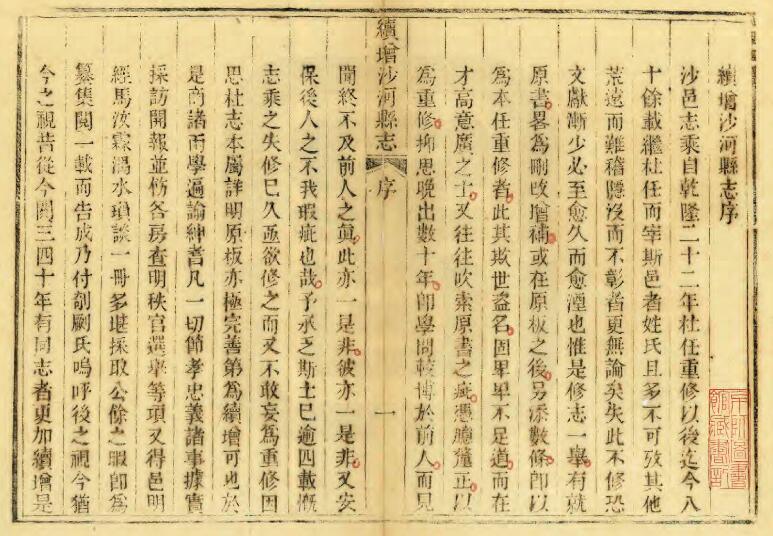 續增沙河縣志序
沙邑志乘自乾隆二十二年杜任重修以後迄今八
十餘載繼杜任而宰斯邑者姓氏且多不可攷其他
荒遠而難稽隱沒而不彰者更無論矣失此不修恐
文獻漸少必至愈久而愈湮也惟是修志一舉有就
原書畧爲刪改增補或在原板之後另添數條卽以
爲本任重修者此其欺世盜名固卑卑不足道而在
才高意廣之士又往往吹索原書之疵憑臆竄正以
爲重修抑思晚出數十年卽學問較博於前人而見
續增沙河縣志
序
一
聞終不及前人之眞此亦一是非彼亦一是非又安
保後人之不我瑕疵也哉予承乏斯土已逾四載慨
志乘之失修已久亟欲修之而又不敢妄爲重修因
思杜志本屬詳明原板亦極完善第爲續增可也於
是商諸兩學遍諭紳耆凡一切節孝忠義諸事據實
採訪開報並飭各房查明秩官選舉等項又得邑明
經馬汝霖渴水瑣談一冊多堪採取公餘之暇卽爲
纂集閱一載而告成乃付剞劂氏嗚呼後之視今猶
今之視昔從今閱三四十年有同志者更加續增是